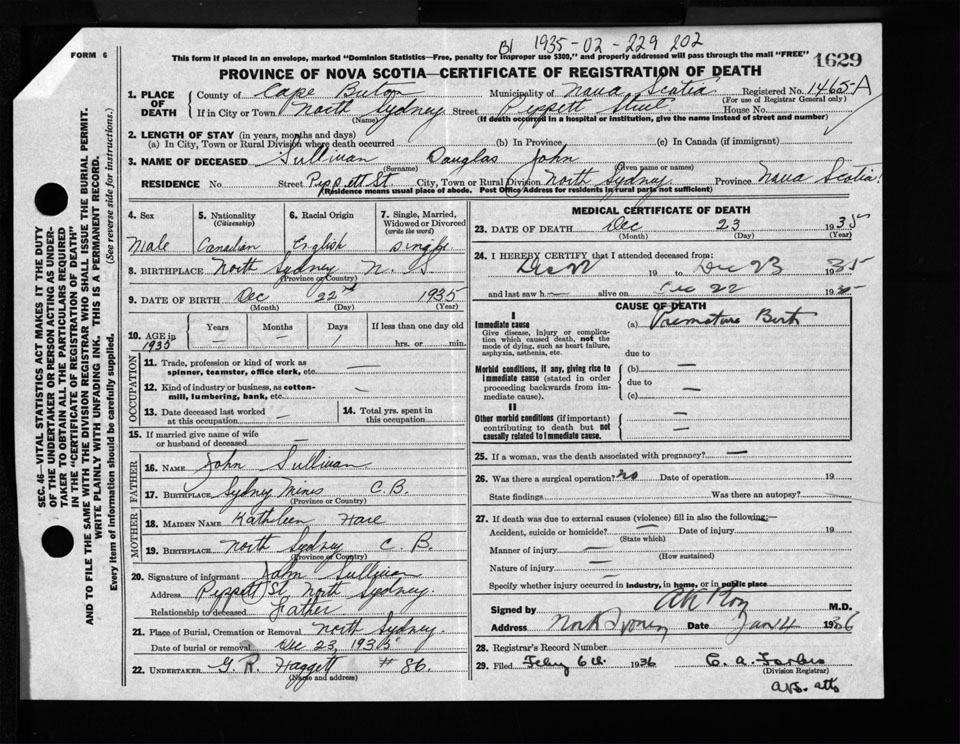 FORM 6
B1 1935-02-229 202
This form if placed in an envelope, marked "Dominion Statistics—Free, penalty for improper use $300," and properly addressed will pass through the mail "FREE"
1629
PROVINCE OF NOVA SCOTIA—CERTIFICATE OF REGISTRATION OF DEATH
1. PLACE OF DEATH County of Cape Breton Municipality of Nova Scotia Registered No. 1465-A
(For use of Registrar General only)
If in City or Town North Sydney Street Pippett Street House No.
(Name) (If death occurred in a hospital or institution, give the name instead of street and number)
2. LENGTH OF STAY (in years, months and days)
(a) In City, Town or Rural Division where death occurred (b) In Province (c) In Canada (if immigrant)
3. NAME OF DECEASED Sullivan Douglas John
(Surname) (Given name or names)
RESIDENCE No. Street Pippett St. City, Town or Rural Division North Sydney. Province Nova Scotia
(Residence means usual place of abode. Post Office Address for residents in rural parts not sufficient)
4. Sex 5. Nationality (Citizenship) 6. Racial Origin 7. Single, Married, Widowed or Divorced (write the word)
Male Canadian English Single
8. BIRTHPLACE North Sydney N. S
(Province or Country)
9. DATE OF BIRTH Dec 22nd 1935
(Month) (Day) (Year)
10. AGE in 1935 Years Months Days If less than one day old
— — 1 hrs. or min.
OCCUPATION
11. Trade, profession or kind of work as spinner, teamster, office clerk, etc. —
12. Kind of industry or business, as cotton-mill, lumbering, bank, etc. —
13. Date deceased last worked at this occupation — 14. Total yrs. spent in this occupation
15. If married give name of wife or husband of deceased —
FATHER
16. NAME John Sullivan
17. BIRTHPLACE Sydney Mines C.B.
(Province or Country)
MOTHER
18. MAIDEN NAME Kathleen Hare
19. BIRTHPLACE North Sydney C. B.
(Province or Country)
20. Signature of informant John Sullivan
Address Pippett St, North Sydney.
Relationship to deceased Father
21. Place of Burial, Cremation or Removal North Sydney.
Date of burial or removal Dec 23, 1935
22. UNDERTAKER G. R. Haggett # 86
(Name and address)
MEDICAL CERTIFICATE OF DEATH
23. DATE OF DEATH Dec 23 1935
(Month) (Day) (Year)
24. I HEREBY CERTIFY that I attended deceased from:
Dec 22 19 to Dec 23 1935
and last saw h— alive on Dec 22 1935
CAUSE OF DEATH
I
Immediate cause (a) Premature Birth
Give disease, injury or complication which caused death, not the mode of dying, such as heart failure, asphyxia, asthenia, etc.
due to
Morbid conditions, if any, giving rise to immediate cause (stated in order proceeding backwards from immediate cause). (b) —
due to
(c) —
II
Other morbid conditions (if important) contributing to death but not causally related to immediate cause. —
—
25. If a woman, was the death associated with pregnancy? —
26. Was there a surgical operation? no Date of operation 19
State findings Was there an autopsy?
27. If death was due to external causes (violence) fill in also the following:—
Accident, suicide or homicide? — Date of injury 19
(State which)
Manner of injury —
(How sustained)
Nature of injury —
Specify whether injury occurred in industry, in home, or in public place
Signed by M.D.
Address North Sydney Date Jan 4 1936
28. Registrar's Record Number
29. Filed Feby 6th 1936 C. A. Forbes
(Division Registrar)
SEC. 46—VITAL STATISTICS ACT MAKES IT THE DUTY
OF THE UNDERTAKER OR PERSON ACTING AS UNDER-
TAKER TO OBTAIN ALL THE PARTICULARS REQUIRED
IN THE "CERTIFICATE OF REGISTRATION OF DEATH"
AND TO FILE THE SAME WITH THE DIVISION REGISTRAR WHO SHALL ISSUE THE BURIAL PERMIT.
WRITE PLAINLY WITH UNFADING INK. THIS IS A PERMANENT RECORD.
Every item of information should be carefully supplied. (See reverse side for instructions.)